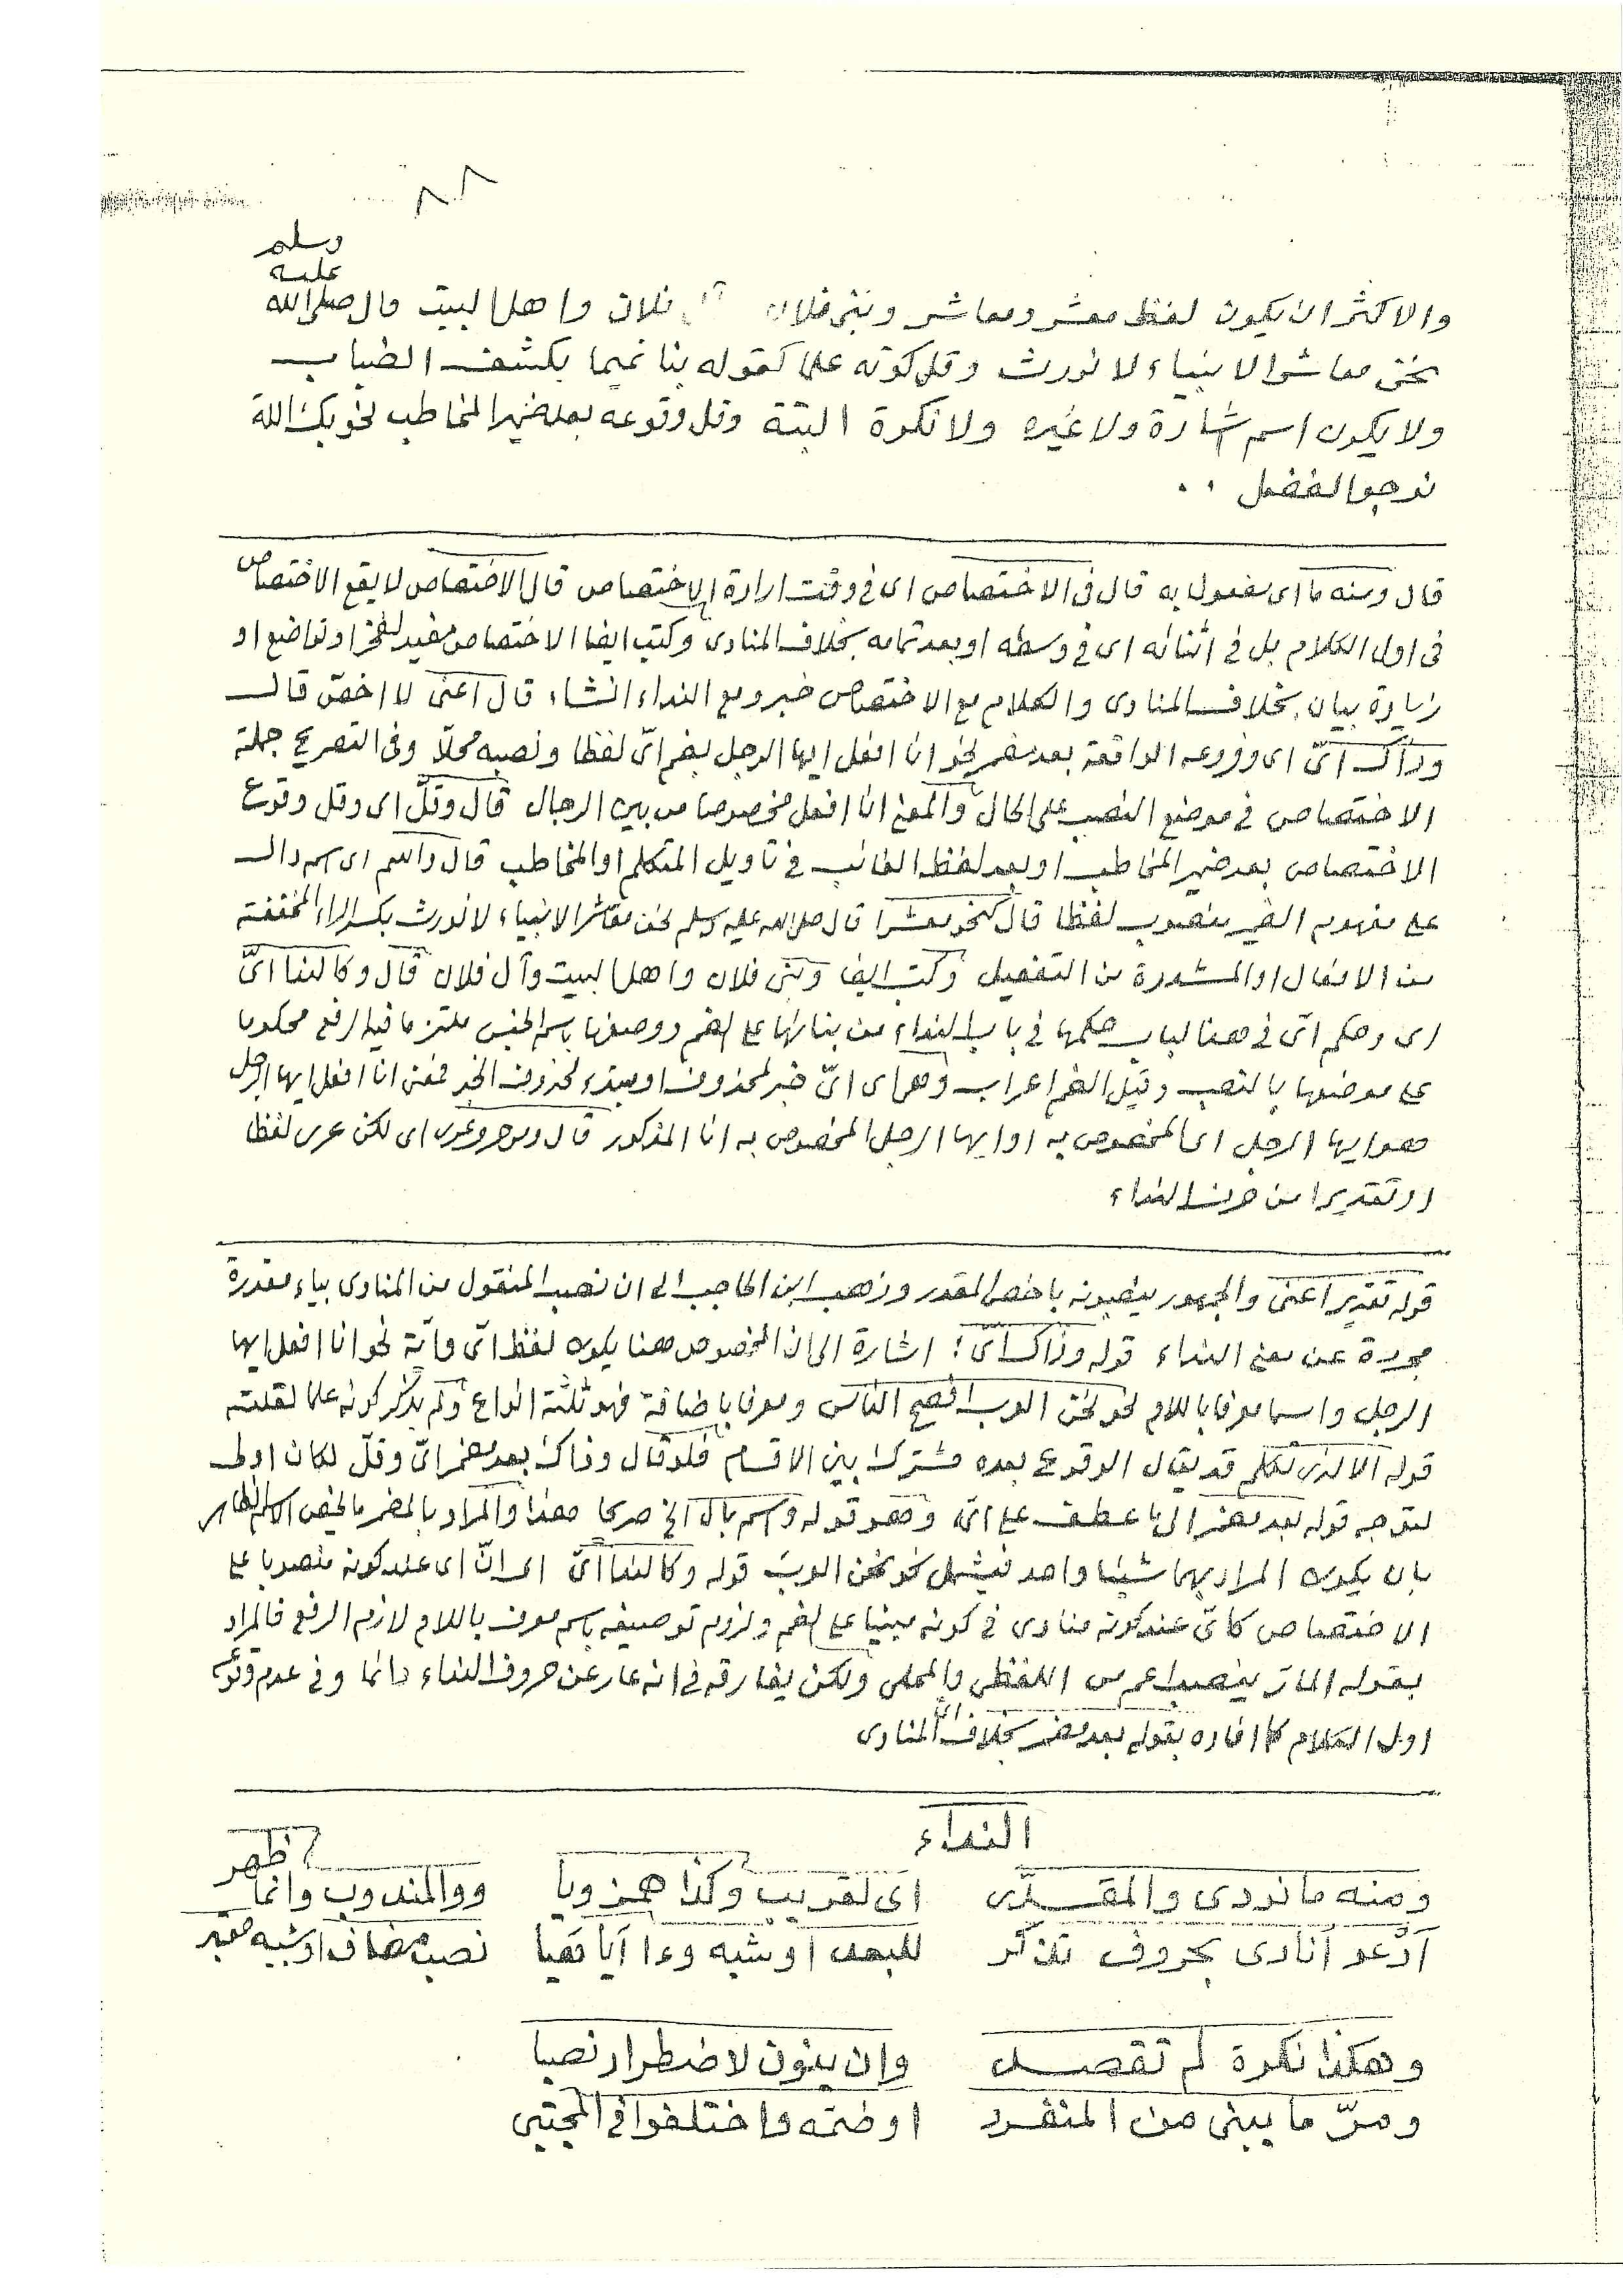 ٨٨
والاكثر ان يكون لفظ معشر ومعاشر وبنى فلان فلان واهل البيت قال صلى الله عليه وسلم
نحن معاشر الانبياء لا نورث وقل كونه علما كقوله بنا تميما يكشف الضباب
ولا يكون اسم اشارة ولا غيره ولا نكرة البتة وقل وقوعه بعد ضمير المخاطب نحو بك الله
نرجو الفضل ..
قال ومنه ما اى مفعول به قال فى الاختصاص اى فى وقت ارادة الاختصاص قال الاختصاص لا يقع الاختصاص
فى اول الكلام بل فى اثنائه اى فى وسطه او بعد تمامه بخلاف المنادى وكتب ايضا الاختصاص مفيد لفخر او تواضع او
زيادة بيان بخلاف المنادى والكلام مع الاختصاص خبر ومع النداء انشاء قال اعنى لا اخصّ قال
وذاك اىّ اى وفروعه الواقعة بعد مضمر نحو انا افعل ايها الرجل بضم اىّ لفظا ونصبه محلّا وفى التصريح جملة
الاختصاص فى موضع النصب على الحال والمعنى انا افعل مخصوصا من بين الرجال قال وقلّ اى وقل وقوع
الاختصاص بعد ضمير المخاطب او بعد لفظ الغائب فى تأويل المتكلم او المخاطب قال واسم اى اسم دال
على مفهوم الضمير منصوب لفظا قال كنحو معشرا قال صلى الله عليه وسلم نحن معاشر الانبياء لا نورث بكسر الراء المخففة
من الافعال او المشددة من التفعيل وكتب ايضا وبنى فلان واهل البيت وآل فلان قال وكالندا اىّ
اى وحكم اىّ فى هذا الباب حكمها فى باب النداء من بنائها على الضم ووصفها باسم الجنس ملتزما فيه الرفع محكوما
على موضعها بالنصب وقيل الضم اعراب وهى اى اىّ خبر لمحذوف او مبتدء محذوف الخبر فمعنى انا افعل ايها الرجل
هو ايها الرجل اى المخصوص به او ايها الرجل المخصوص به انا المذكور قال اى لكن عرى لفظا
او تقديرا من حرف النداء
قوله تقدير اعنى والجمهور ينصبونه باخص المقدر وذهب ابن الحاجب الى ان نصب المنقول من المنادى بياء مقدرة
مجردة عن معنى النداء قوله وذاك اىّ ؛ اشارة الى ان المخصوص هنا يكون لفظ اىّ وايّة نحو انا افعل ايها
الرجل واسما معرفا باللام نحو نحن العرب افصح الناس ومعرفا باضافة فهو ثلثة انواع ولم يذكر كونه علما لقلته
قوله الا لذى تكلم قد يقال الوقوع بعده مشترك بين الاقسام فلو قال وذاك بعد مضمر اىّ وقلّ لكان اولى
ليتوجه قوله بعد مضمر الى ما عطف على اىّ وهو قوله واسم بال الخ صريحا هذا والمراد بالمضمر ما يخص الاسم الظاهر
بان يكون المراد بهما شيئا واحد فيشمل نحو نحن العرب قوله وكالندا اىّ اى انّ اى عند كونه منصوبا على
الاختصاص كاىّ عند كونه منادى فى كونه مبنيا على الضم ولزوم توصيفه باسم معرف باللام لازم الرفع فالمراد
بقوله المارّ ينصب اعم من اللفظى والمحلى ولكن يفارقه فى انه عار عن حروف النداء دائما وفى عدم وقوعه
اول الكلام كما افاده بقوله بعد مضمر بخلاف اىّ المنادى
النداء
ومنه ما نودى والمقدّر اى لقريب وكذا همز ويا ووالمندوب وانما ظهر
اَدْعو اُنادى بحروف تذكر للبعد او شبه وءا اَيا هَيا نصب مضاف او شبيه
وهكذا نكرة لم تقصد وان ينون لاضطرار نصبا
ومرّ ما يبنى من المنفرد او ضمّه واختلفوا فى المجتبى